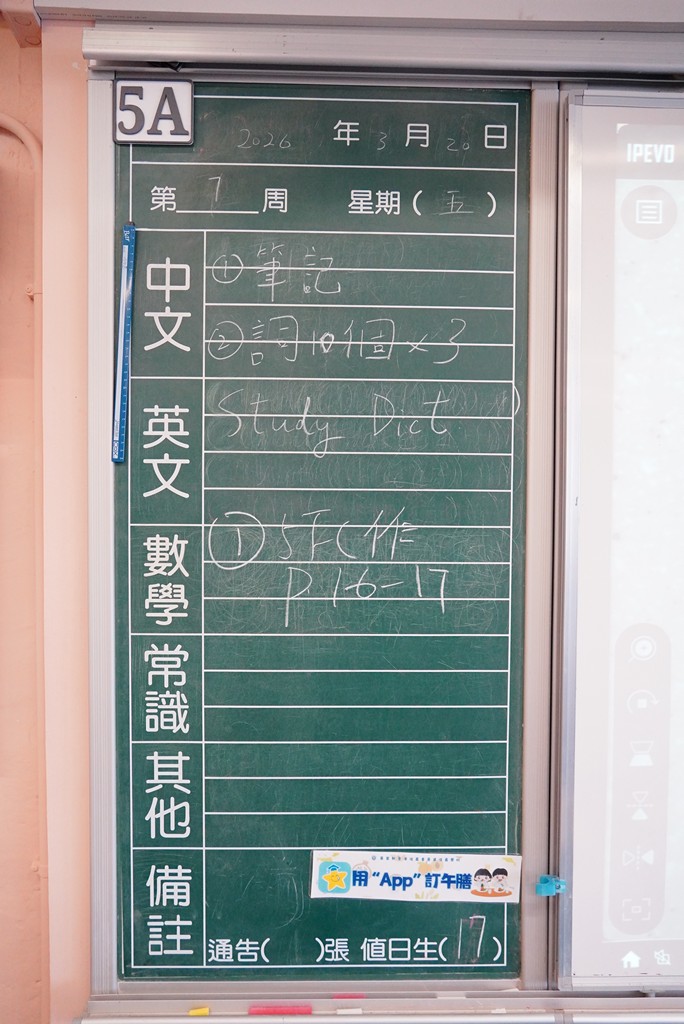 5A
2026 年 3 月 20 日
第 7 周 星期 ( 五 )
中文
① 筆記
② 詞10個×3
英文
Study Dict
數學
① 5下C作
P.16-17
常識
其他
備註
用 “App” 訂午膳
通告( )張 值日生( 17 )
IPEVO